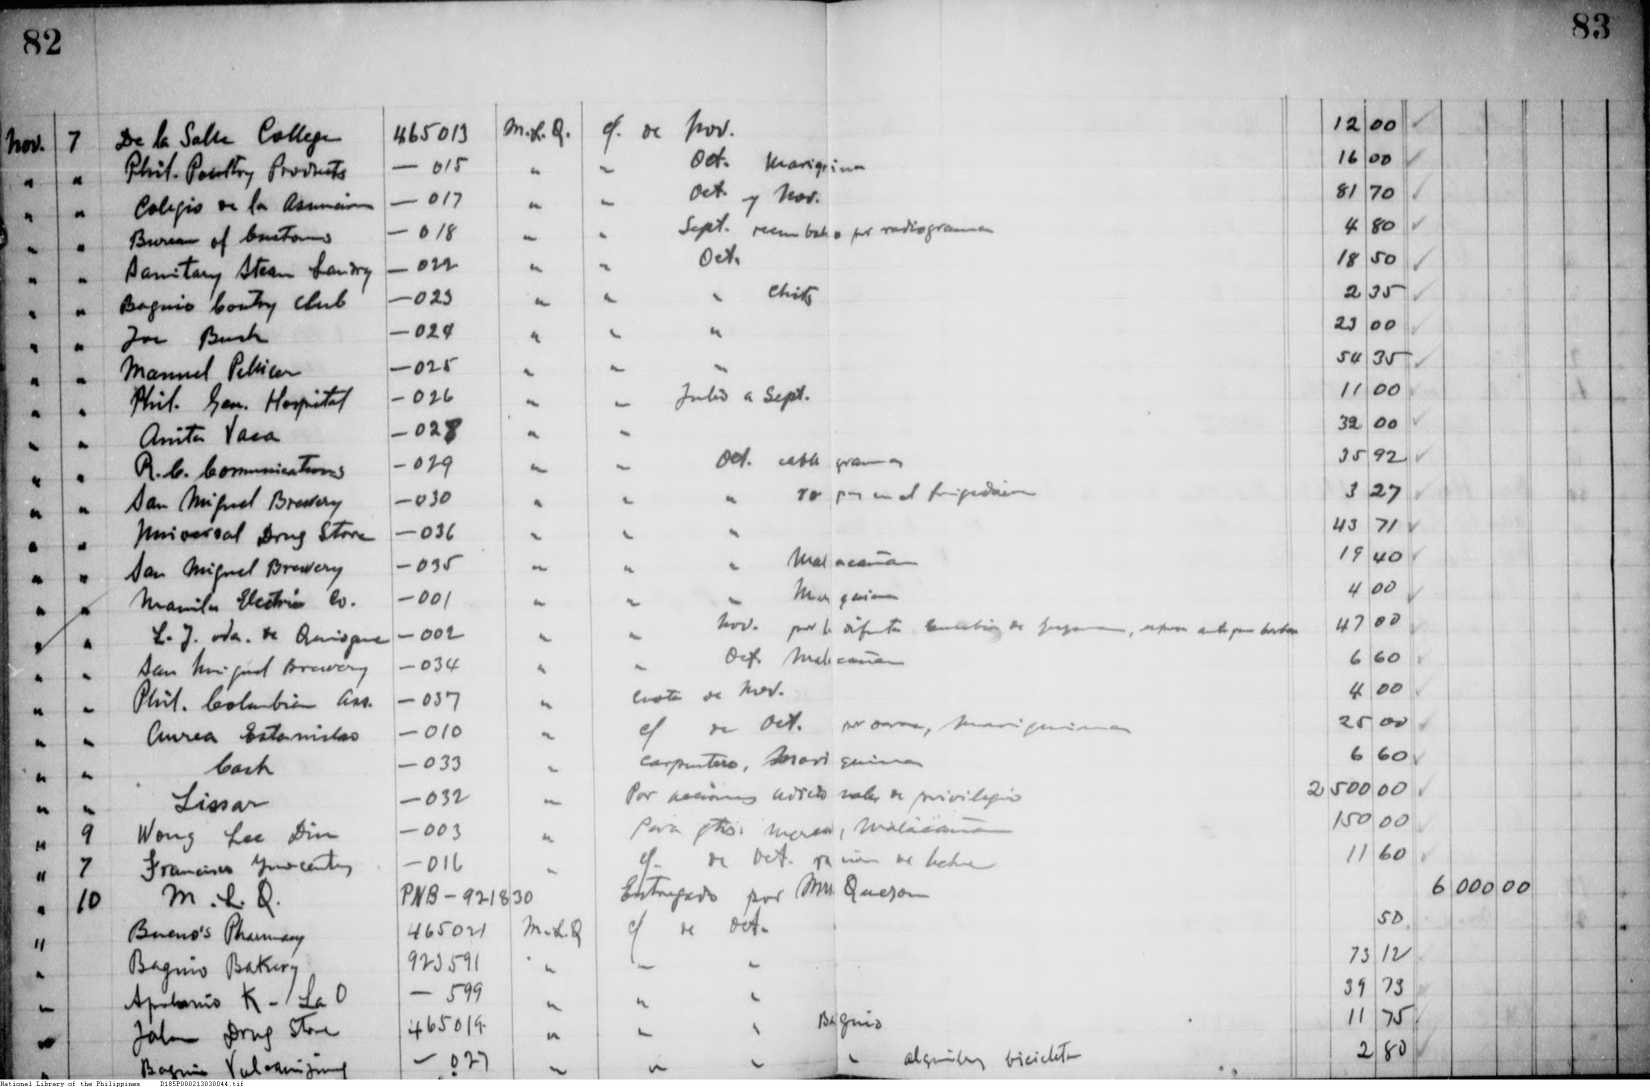 82 83
Nov. 7 De la Salle College 465013 M.L.Q. cf. de Nov. 12 00 ✓
" " Phil. Poultry Products — 015 " " Oct. Mariquina 16 00 ✓
" " Colegio de la Asuncion — 017 " " Oct. y Nov. 81 70 ✓
" " Bureau of Customs — 018 " " Sept. por radiograma 4 80 ✓
" " Sanitary Steam Landry — 022 " " Oct. 18 50 ✓
" " Baguio Contry Club — 023 " " " Chits 2 35 ✓
" " Joe Bush — 024 " " " 23 00 ✓
" " Manuel Pellicer — 025 " " " 54 35 ✓
" " Phil. Gen. Hospital — 026 " " Julio a Sept. 11 00 ✓
" " Anita Vaca — 028 " " 32 00 ✓
" " R.C. Communications — 029 " " Oct. cablegramas 35 92 ✓
" " San Miguel Brewery — 030 " " " 3 27 ✓
" " Universal Drug Store — 036 " " " 43 71 ✓
" " San Miguel Brewery — 035 " " " Malacañan 19 40 ✓
" " Manila Electric Co. — 001 " " " 4 00 ✓
" " L. J. vda. de — 002 " " Nov. 47 00 ✓
" " San Miguel Brewery — 034 " " Oct. Malacañan 6 60 ✓
" " Phil. Columbian Ass. — 037 " cuota de Nov. 4 00 ✓
" " Aurea Estanislao — 010 " cf de Oct. Mariquina 25 00 ✓
" " Cash — 033 " carpintero, Mariquina 6 60 ✓
" " Lissar — 032 " Por acciones de privilegio 2 500 00 ✓
" 9 Wong Lee Din — 003 " Para Malacañan 150 00 ✓
" 7 Francisco — 016 " cf. de Oct. de leche 11 60 ✓
" 10 M.L.Q. PNB - 921830 Entregado por Mrs Quezon 6 000 00
" Bueno's Pharmacy 465021 M.L.Q cf de Oct. 50
" Baguio Bakery 923591 " " " 73 12
" Apolonio K - La O — 599 " " " 39 73
" Drug Store 465019 " " " Baguio 11 75
" Baguio Vulcanizing — 027 " " " " alquiler bicicleta 2 80 ✓
National Library of the Philippines D185P000213030044.tif